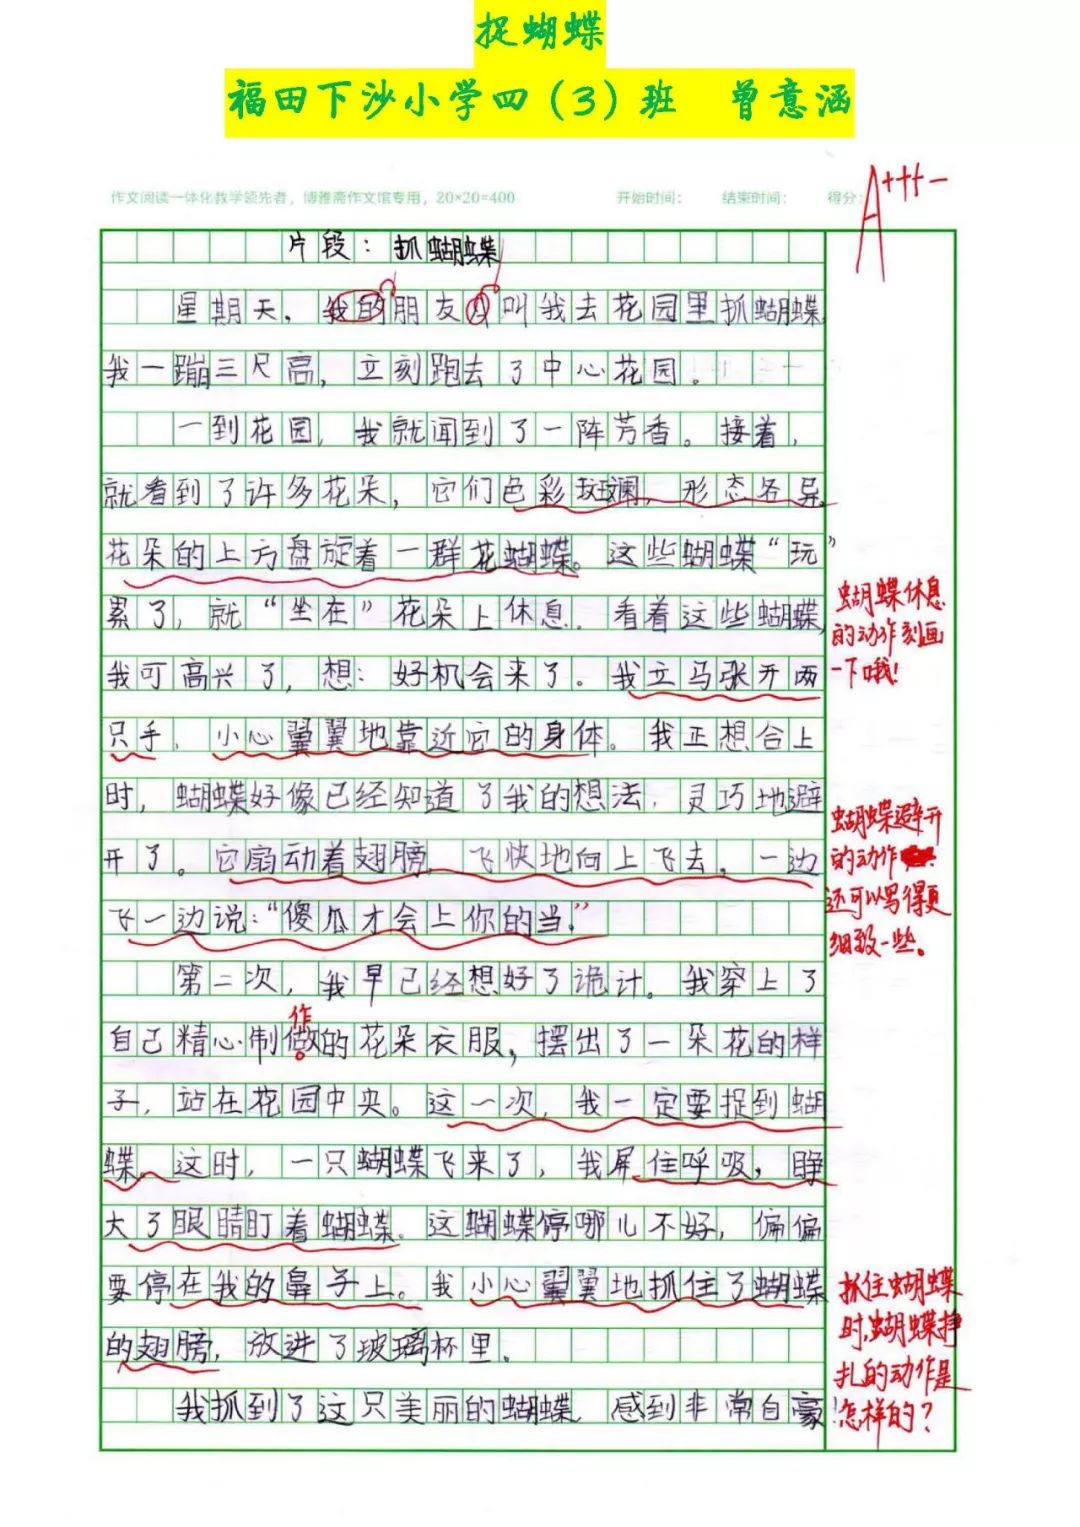 捉蝴蝶
福田下沙小学四（3）班 曾意涵
作文阅读一体化教学领先者，博雅斋作文馆专用，20×20=400 开始时间： 结束时间： 得分：
A+++-
片段：抓蝴蝶
星期天，我的朋友叫我去花园里抓蝴蝶
我一蹦三尺高，立刻跑去了中心花园。
一到花园，我就闻到了一阵芳香。接着，
就看到了许多花朵，它们色彩斑斓，形态各异。
花朵的上方盘旋着一群花蝴蝶。这些蝴蝶“玩”
累了，就“坐在”花朵上休息。看着这些蝴蝶，
我可高兴了，想：好机会来了。我立马张开两
只手，小心翼翼地靠近它的身体。我正想合上
时，蝴蝶好像已经知道了我的想法，灵巧地避
开了。它扇动着翅膀，飞快地向上飞去，一边
飞一边说：“傻瓜才会上你的当。”
第二次，我早已经想好了诡计。我穿上了
自己精心制做的花朵衣服，摆出了一朵花的样
作
子，站在花园中央。这一次，我一定要捉到蝴
蝶。这时，一只蝴蝶飞来了，我屏住呼吸，睁
大了眼睛盯着蝴蝶。这蝴蝶停哪儿不好，偏偏
要停在我的鼻子上。我小心翼翼地抓住了蝴蝶
的翅膀，放进了玻璃杯里。
我抓到了这只美丽的蝴蝶，感到非常自豪！
蝴蝶休息
的动作刻画
一下哦！
蝴蝶避开
的动作
还可以写得更
细致一些。
抓住蝴蝶
时，蝴蝶挣
扎的动作是
怎样的？